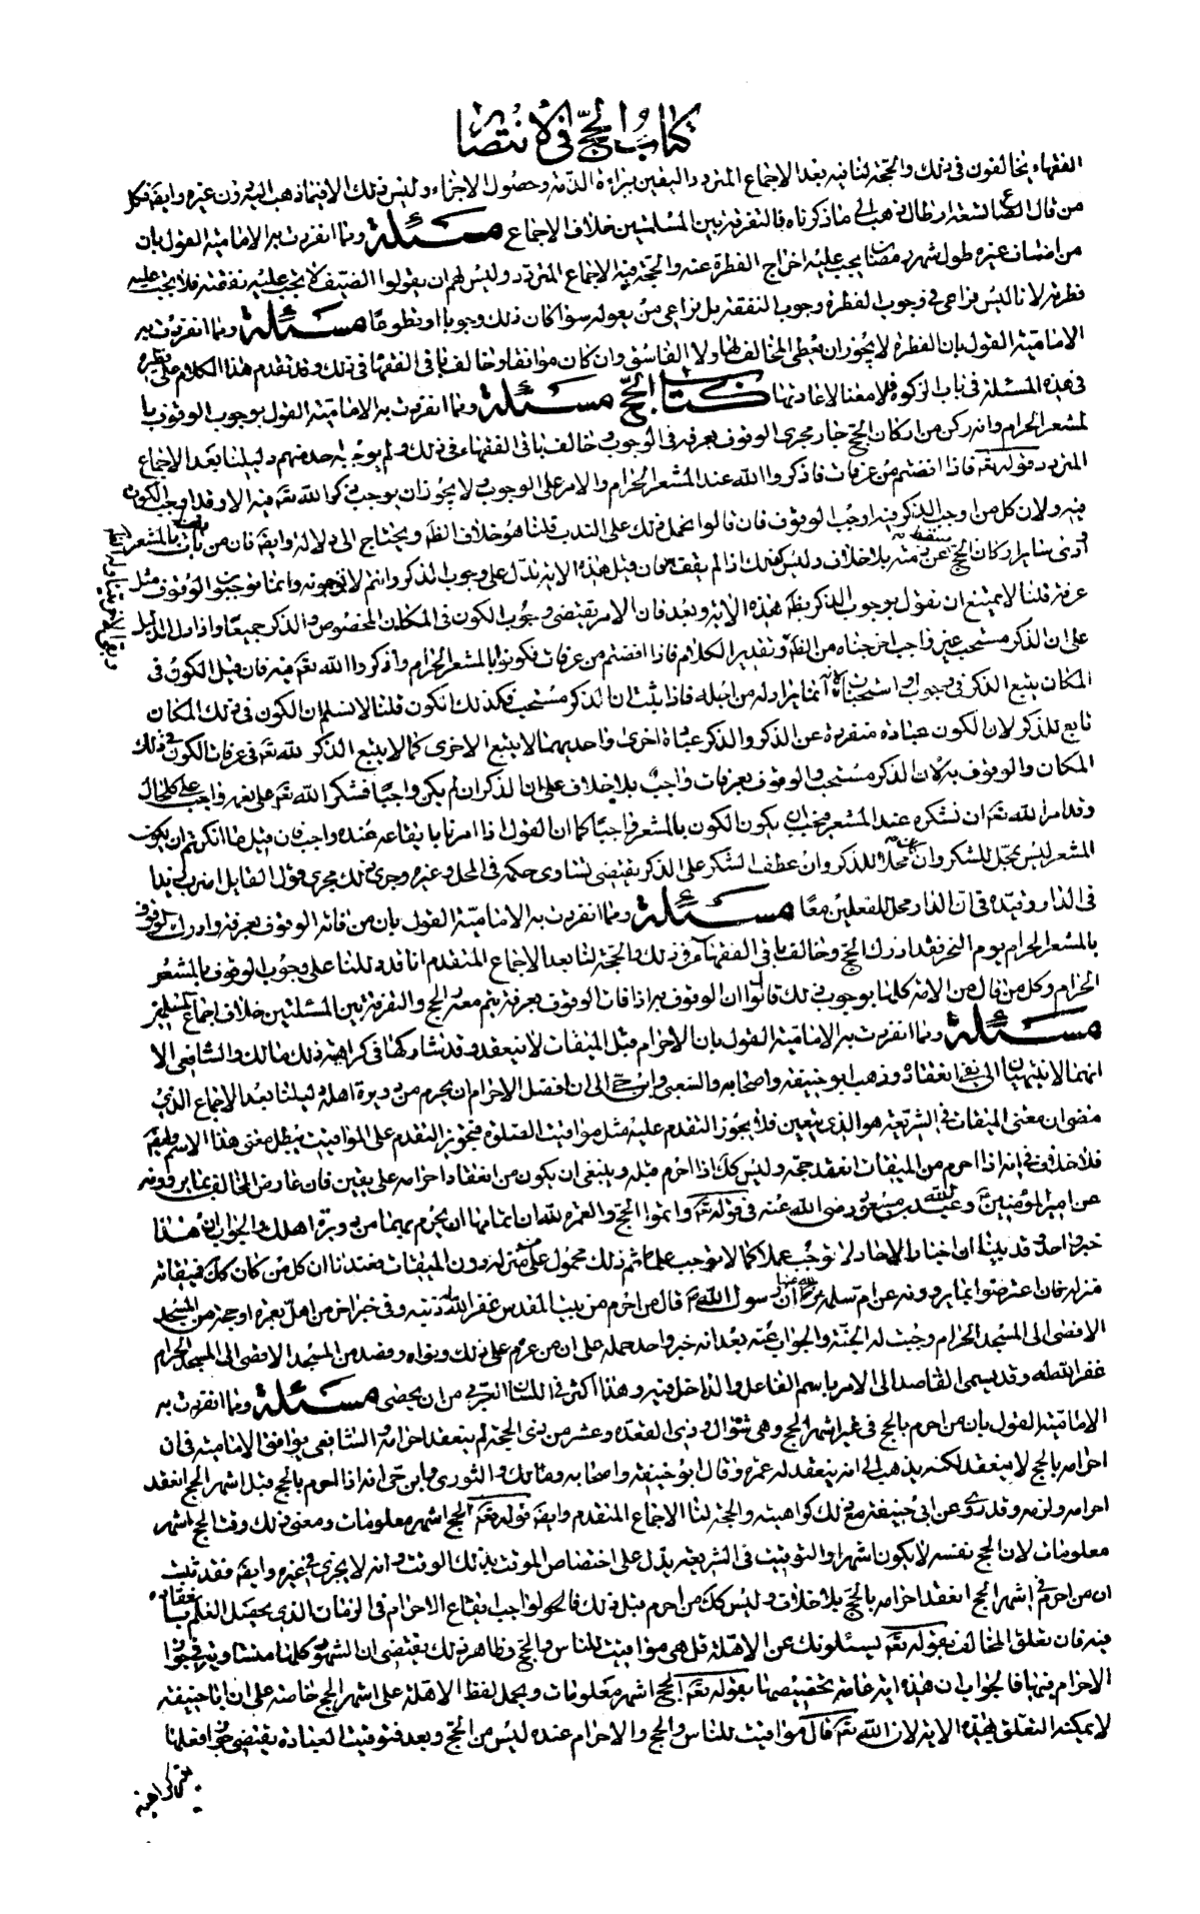 كتاب الحج في الانتصار
الفقهاء يخالفون في ذلك والحجة لنا فيه بعد الاجماع المتردد اليقين ببراءة الذمة وحصول الاجزاء وليس ذلك الا فيما ذهبنا اليه دون غيره وايضا فكل
من قال ان الصاع تسعة ارطال ذهب الى ما ذكرناه فالتفرقة بين المسئلتين خلاف الاجماع مسئلة ومما انفردت به الامامية القول بان
من اضاف غيره طول شهر رمضان يجب عليه اخراج الفطرة عنه والحجة فيه الاجماع المتردد وليس لهم ان يقولوا الضيف لا يجب عليه نفقته فلا يجب عليه
فطرته لانا ليس نراعي في وجوب الفطرة وجوب النفقة بل نراعي من يعوله سواء كان ذلك وجوبا او تطوعا مسئلة ومما انفردت به
الامامية القول بان الفطرة لا يجوز ان يعطى المخالف لها ولا الفاسق وان كان موافقا وخالف باقي الفقهاء في ذلك وقد تقدم هذا الكلام على نظيره
في هذه المسئلة في باب الزكوة فلا معنى لاعادتها كتاب الحج مسئلة ومما انفردت به الامامية القول بوجوب الوقوف با
لمشعر الحرام وانه ركن من اركان الحج جار مجرى الوقوف بعرفة في الوجوب وخالف باقي الفقهاء في ذلك ولم يوجبه احد منهم دليلنا بعد الاجماع
المتردد قوله تعه فاذا افضتم من عرفات فاذكروا الله عند المشعر الحرام والامر على الوجوب ولا يجوز ان يوجب ذكر الله تعه فيه الا وقد اوجب الكون
فيه ولان كل من اوجب الذكر فيه اوجب الوقوف فان قالوا نحمل ذلك على الندب قلنا هو خلاف الظه ويحتاج الى دلالة وايضا فان من بالمشعر
وادى سائر اركان الحج سقط عن ذمته بلا خلاف وليس كذلك اذا لم يقف فان قيل هذه الاية تدل على وجوب الذكر وانتم لا توجبونه وانما توجبون الوقوف مثل
عرفة قلنا لا يمتنع ان نقول بوجوب الذكر بظه هذه الاية وبعد فان الامر يقتضى وجوب الكون في المكان المخصوص والذكر جميعا واذا دل الدليل
على ان الذكر مستحب غير واجب اخرجناه من الظه وتقدير الكلام فاذا افضتم من عرفات فكونوا بالمشعر الحرام واذكروا الله تعه فيه فان قيل الكون في
المكان يتبع الذكر في وجوب او استحباب لانه انما يراد له من اجله فاذا ثبت ان الذكر مستحب فكذلك الكون قلنا لا نسلم ان الكون في ذلك المكان
تابع للذكر لان الكون عبادة منفردة عن الذكر والذكر عبادة اخرى واحديهما لا يتبع الاخرى كما لا يتبع الذكر لله تعه في عرفات الكون في ذلك
المكان والوقوف به لان الذكر مستحب والوقوف بعرفات واجب بلا خلاف على ان الذكر ان لم يكن واجبا فشكر الله تعه على نعمه واجب على كل حال
وقد امر الله تعه ان نشكره عند المشعر فيجب ان يكون الكون بالمشعر واجبا كما ان الفعل اذا امرنا بايقاعه عنده واجب فان قيل ما انكرتم ان يكون
المشعر ليس بمحل للشكر وان كان محلا للذكر وان عطف الشكر على الذكر يقتضى تساوى حكمه في المحل وغيره وجرى ذلك مجرى قول القائل اضرب زيدا
في الدار وقيده في ان الدار محل للفعلين معا مسئلة ومما انفردت به الامامية القول بان من فاته الوقوف بعرفة وادرك الوقوف
بالمشعر الحرام يوم النحر فقد ادرك الحج وخالف باقي الفقهاء في ذلك والحجة لنا بعد الاجماع المتقدم انا قد دللنا على وجوب الوقوف بالمشعر
الحرام وكل من قال من الامة كلها بوجوب ذلك قالوا ان الوقوف به اذا فات الوقوف بعرفة يتم معه الحج والتفرقة بين المسئلتين خلاف اجماع المسلمين
مسئلة ومما انفردت به الامامية القول بان الاحرام قبل الميقات لا ينعقد وقد شاركها في كراهية ذلك مالك والشافعي الا
انهما لا ينتهيان الى نفي انعقاده وذهب ابو حنيفة واصحابه والشعبي وابن حى الى ان افضل الاحرام ان يحرم من دويرة اهله دليلنا بعد الاجماع الذى
مضى ان معنى الميقات في الشريعة هو الذى يتعين فلا يجوز التقدم عليه مثل مواقيت الصلوة فتجويز التقدم على المواقيت يبطل معنى هذا الاسم وايضا
فلا خلاف في انه اذا احرم من الميقات انعقد حجه وليس كك اذا احرم قبله وينبغى ان يكون من انعقاد احرامه على يقين فان عارض المخالف بما يروونه
عن امير المؤمنين وعبد الله بن مسعود رضى الله عنه في قوله تعه واتموا الحج والعمرة لله ان اتمامها ان يحرم بهما من دويرة اهلك والجواب ان هذا
خبر واحد وقد بينا ان اخبار الاحاد لا توجب عملا كما لا توجب علما ثم ذلك محمول على من منزله دون الميقات فعندنا ان كل من كان كك فميقاته
منزله فان اعترضوا بما يروونه عن ام سلمة رضى الله عنها ان رسول الله قال من احرم من بيت المقدس غفر الله له ذنبه وفي خبر اخر من اهل بعمرة او حجة من المسجد
الاقصى الى المسجد الحرام وجبت له الجنة والجواب عنه بعد انه خبر واحد حمله على ان من عزم على ذلك ونواه وقصد من المسجد الاقصى الى المسجد الحرام
غفر الله له وقد يسمى القاصد الى الامر باسم الفاعل والداخل فيه وهذا اكثر في اللسان العربي من ان يحصى مسئلة ومما انفردت به
الامامية القول بان من احرم بالحج في غير اشهر الحج وهي شوال وذى القعدة وعشر من ذى الحجة لم ينعقد احرامه والشافعي يوافق الامامية في ان
احرامه بالحج لا ينعقد لكنه يذهب الى انه ينعقد له عمرة وقال ابو حنيفة واصحابه ومالك والثورى وابن حى انه اذا احرم بالحج قبل اشهر الحج انعقد
احرامه ولزمه وقد روى عن ابى حنيفة مع ذلك كراهيته والحجة لنا الاجماع المتقدم وايضا قوله تعه الحج اشهر معلومات ومعنى ذلك وقت الحج اشهر
معلومات لان الحج نفسه لا يكون اشهرا والتوقيت في الشريعة يدل على اختصاص الموقت بذلك الوقت وانه لا يجزى في غيره وايضا فقد ثبت
ان من احرم في اشهر الحج انعقد احرامه بالحج بلا خلاف وليس كك من احرم قبل ذلك فالواجب ايقاع الاحرام في الزمان الذى يحصل العلم بانعقاده
فيه فان تعلق المخالف بقوله تعه يسئلونك عن الاهلة قل هي مواقيت للناس والحج وظاهر ذلك يقتضى ان الشهور كلها متساوية في جواز
الاحرام فيها فالجواب ان هذه اية عامة نخصصها بقوله تعه الحج اشهر معلومات ويحمل لفظ الاهلة على اشهر الحج خاصة على ان ابا حنيفة
لا يمكنه التعلق بهذه الاية لان الله تعه قال مواقيت للناس والحج والاحرام عنده ليس من الحج وبعد فتوقيت العبادة يقتضى جواز فعلها